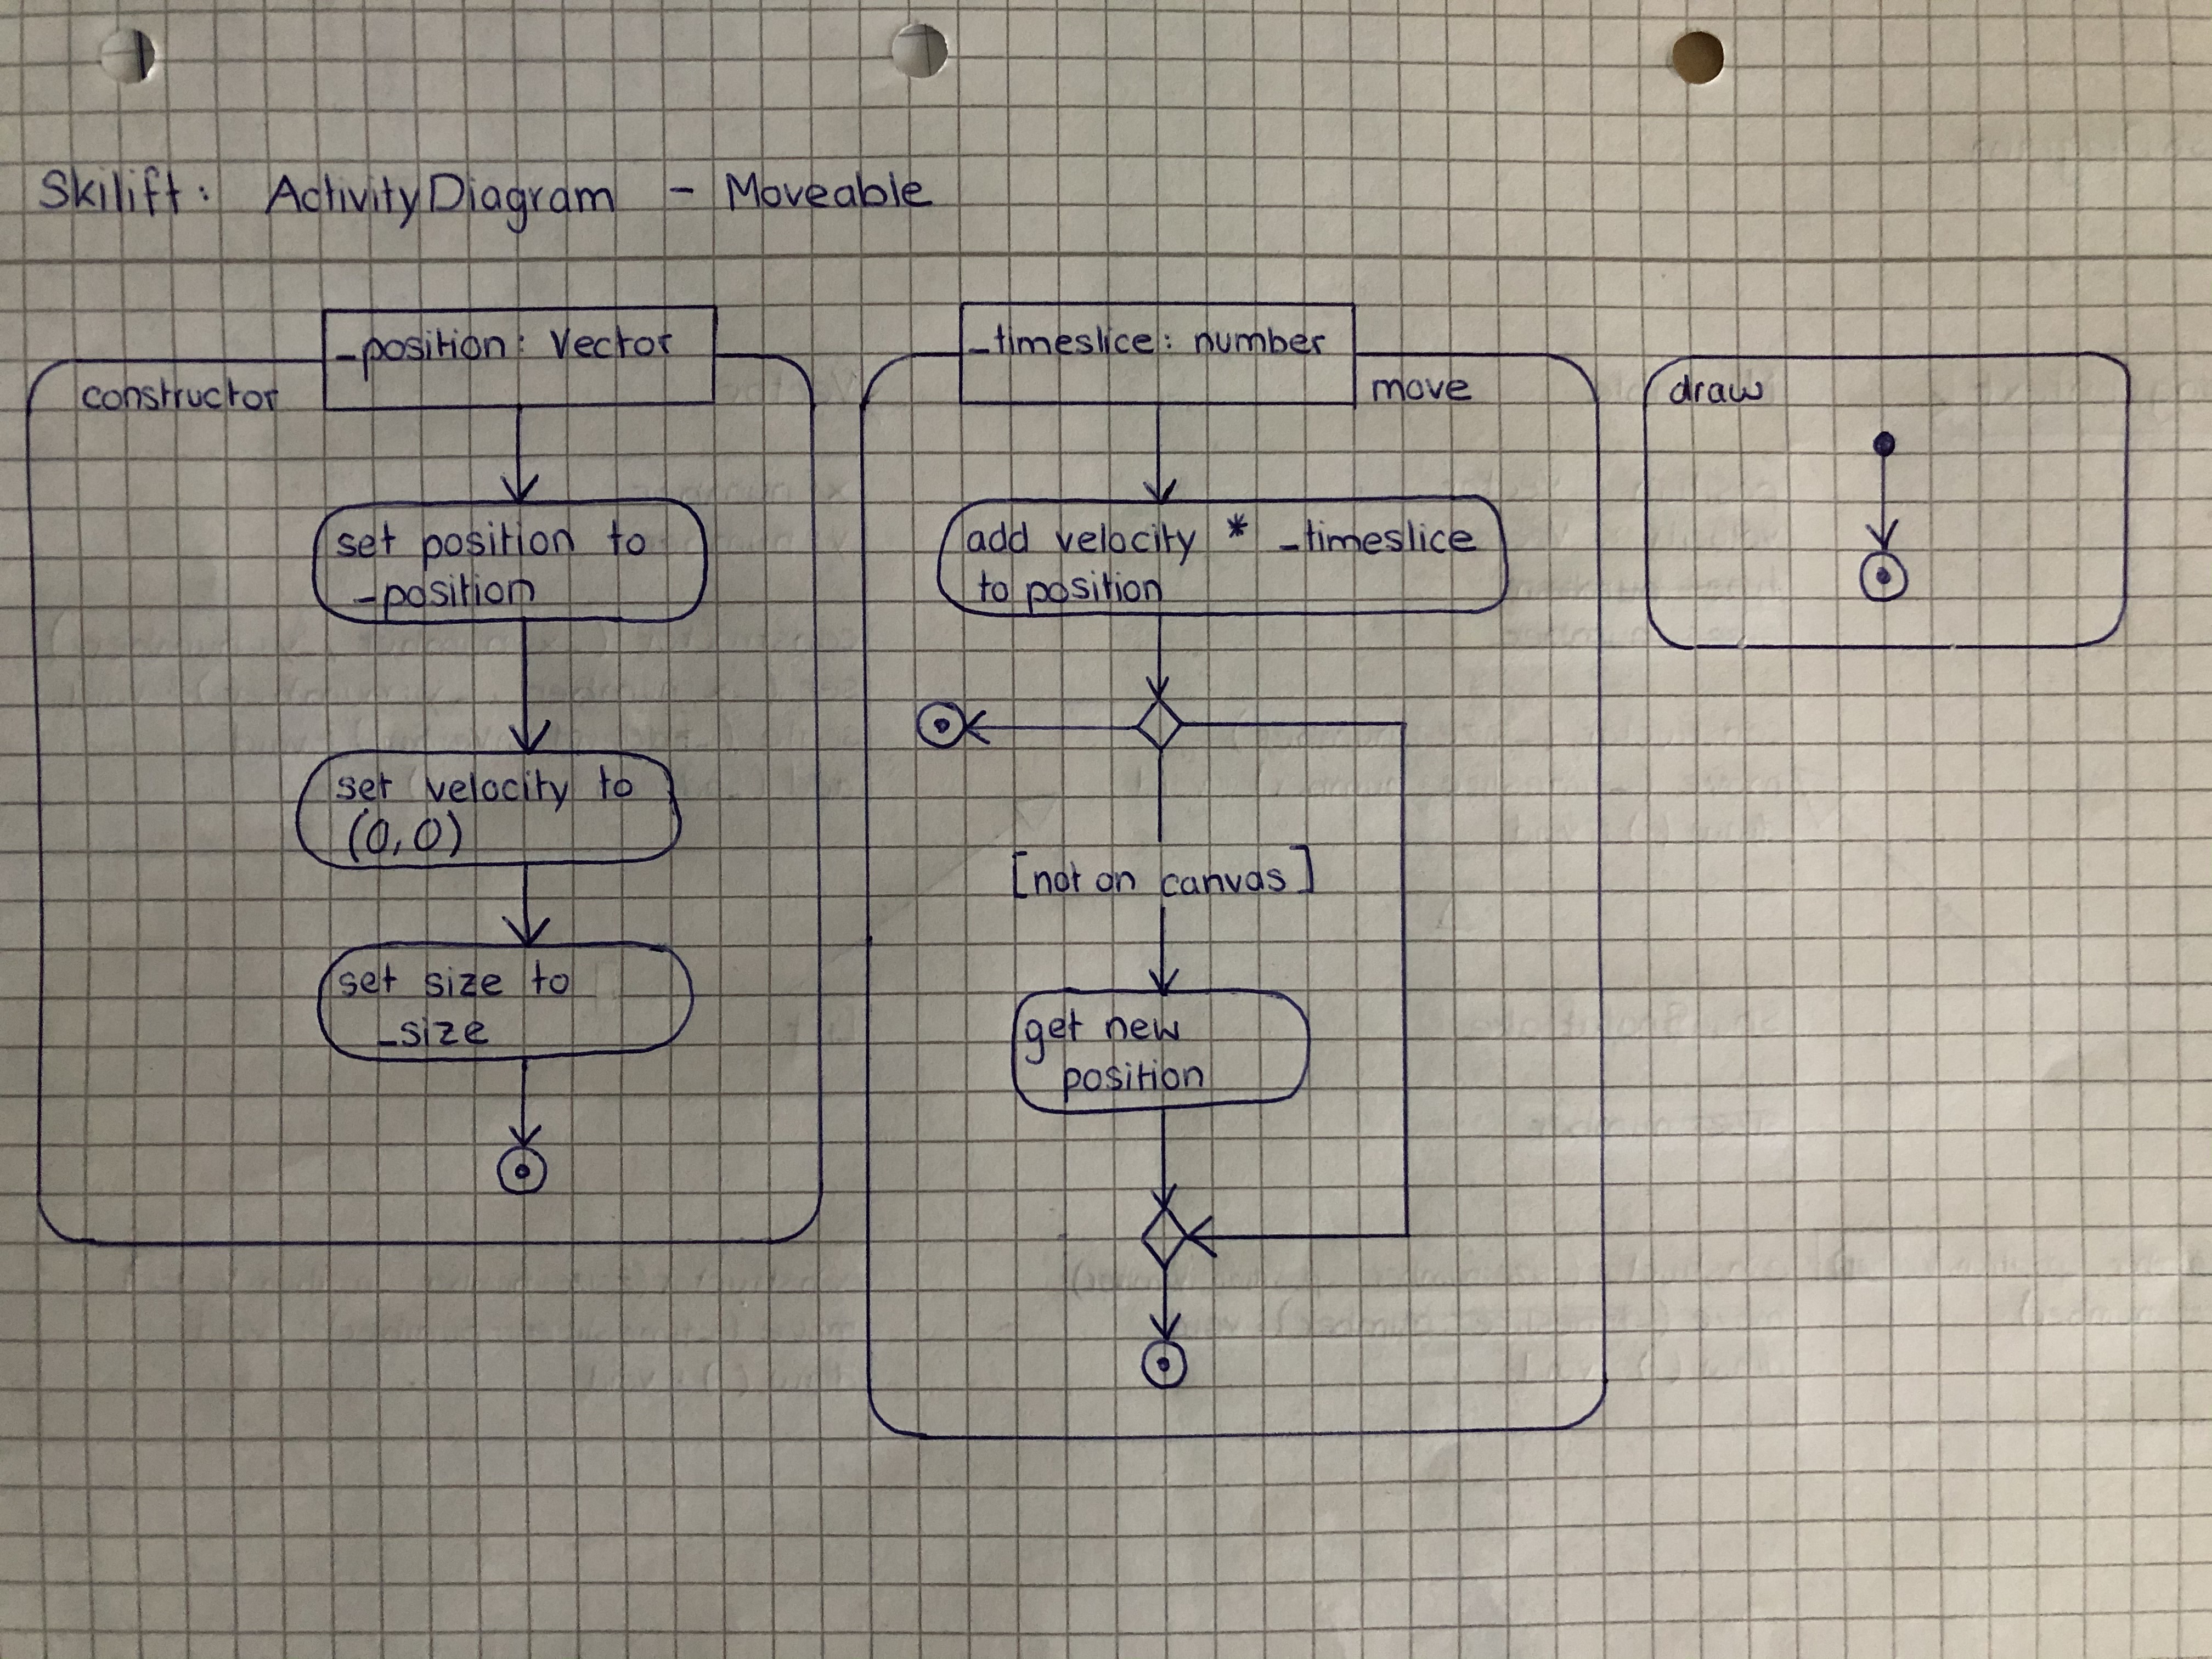 Skilift: ActivityDiagram - Moveable
_position: Vector
constructor
set position to
_position
set velocity to
(0,0)
set size to
_size
_timeslice: number
move
add velocity * _timeslice
to position
[not on canvas]
get new
position
draw